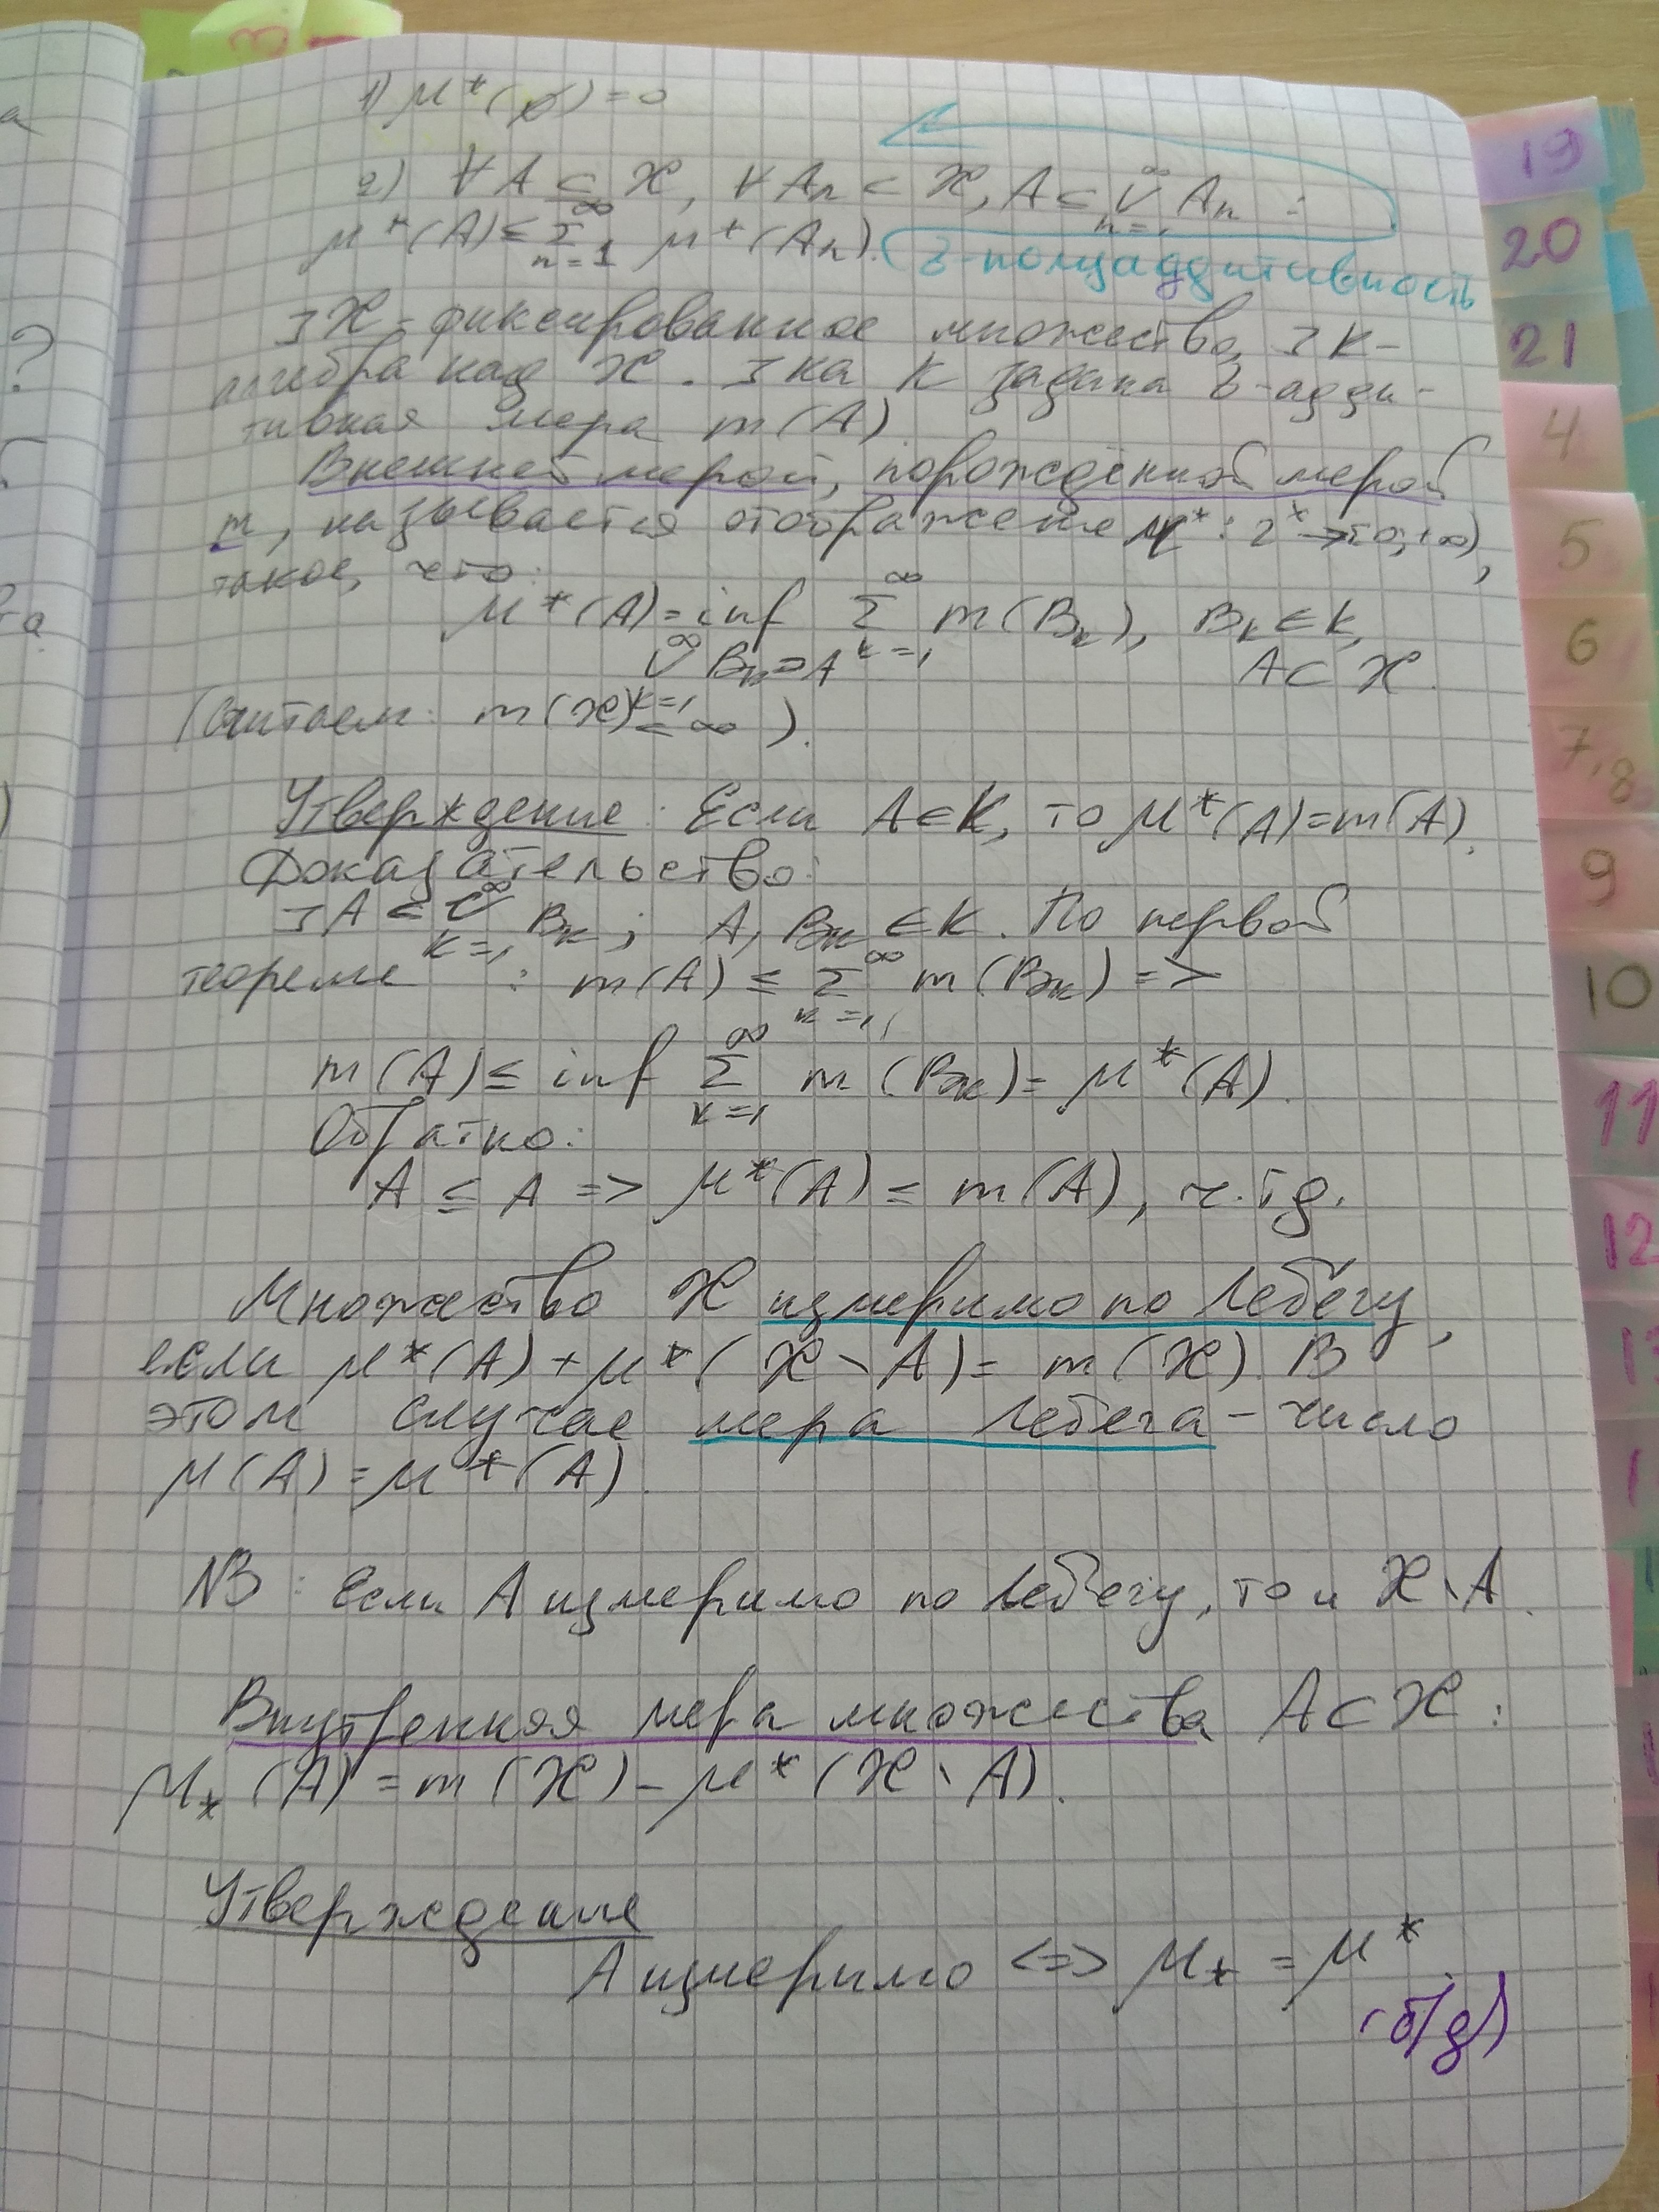 1) μ*(∅)=0
2) ∀A ⊆ X, ∀Aₙ ⊂ X, A ⊂ ∞∪n=1 Aₙ :
μ*(A) ≤ ∞Σn=1 μ*(Aₙ). (σ-полуаддитивность
∃X - фиксированное множество, ∃K -
алгебра над X. ∃ на K задана σ-адди-
тивная мера m(A).
Внешней мерой, порождённой мерой
m, называется отображение μ*: 2ˣ→[0;+∞),
такое, что:
μ*(A)= inf ∞Σk=1 m(Bₖ), Bₖ∈K,
∞∪k=1 Bₖ⊃A A⊂X.
(Считаем: m(X)<∞).
Утверждение: Если A∈K, то μ*(A)=m(A).
Доказательство:
∃A ⊂ ∞∪k=1 Bₖ; A, Bₖ∈K. По первой
теореме : m(A) ≤ ∞Σk=1 m(Bₖ) =>
m(A) ≤ inf ∞Σk=1 m(Bₖ)= μ*(A).
Обратно:
A ⊆ A => μ*(A) ≤ m(A), ч.т.д.
Множество X измеримо по Лебегу,
если μ*(A)+μ*(X\A)= m(X). В
этом случае мера Лебега - число
μ(A)=μ*(A).
NB: Если A измеримо по Лебегу, то и X\A.
Внутренняя мера множества A⊂X:
μ⁎(A)=m(X)-μ*(X\A).
Утверждение
A измеримо <=> μ⁎=μ*.
(б/д)
19
20
21
4
5
6
7,8
9
10
11
12